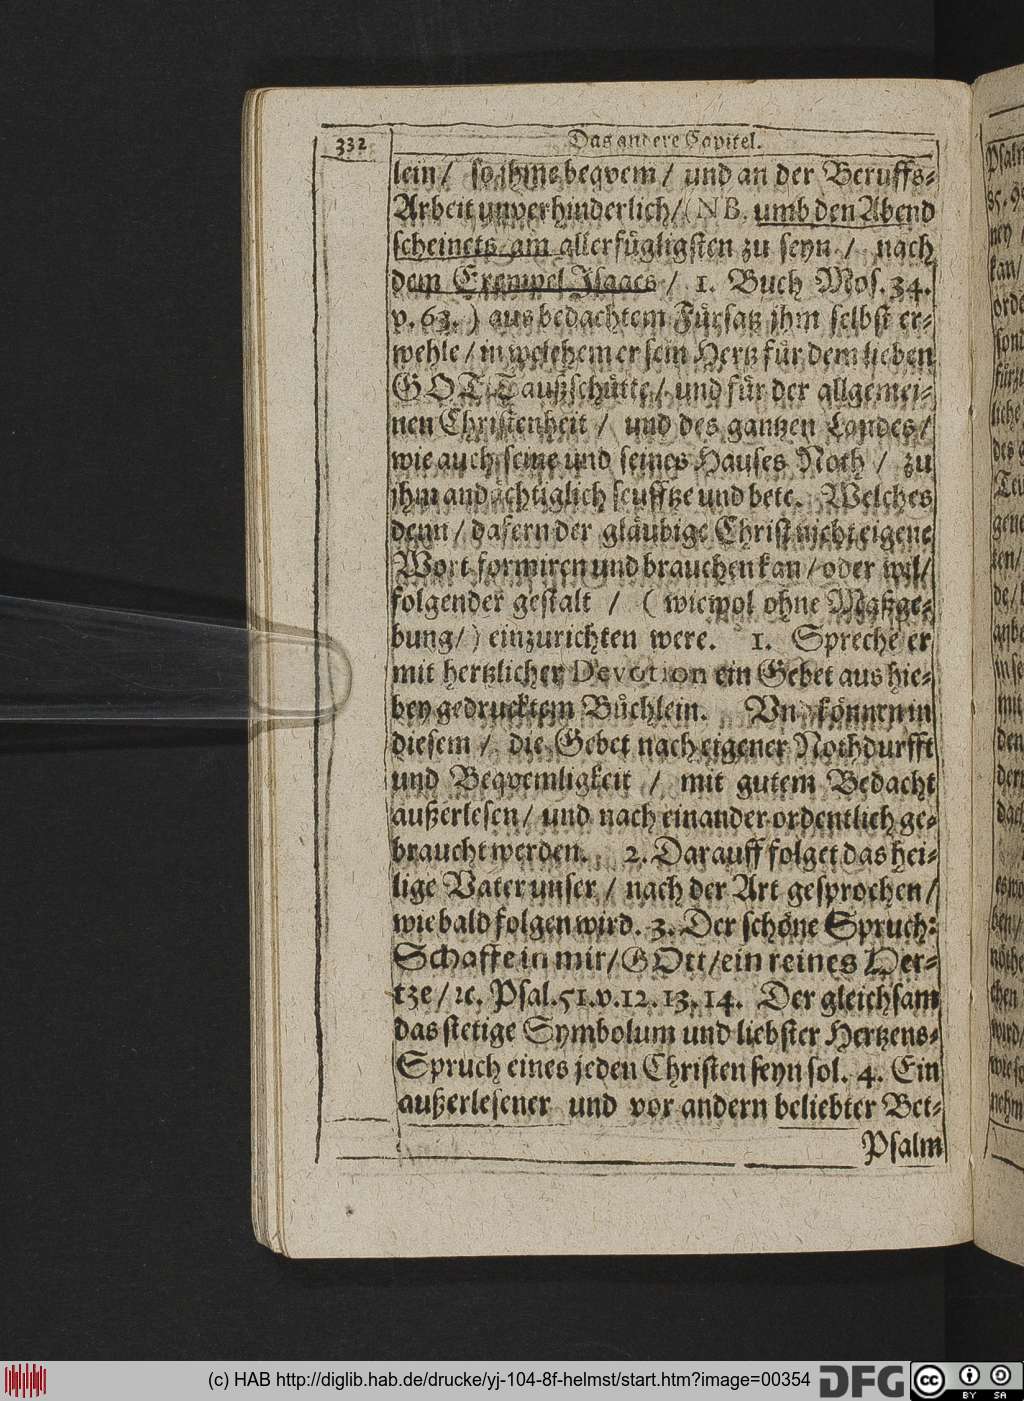 332
Das andere Capitel.
lein / so ihme beqvem / und an der Beruffs-
Arbeit unverhinderlich / (NB. umb den Abend
scheinets am allerfügligsten zu seyn / nach
dem Exempel Isaacs / 1. Buch Mos. 34.
v. 63. ) aus bedachtem Fürsatz ihm selbst er-
wehle / in welchem er sein Hertz für dem lieben
GOTT außschütte / und für der allgemei-
nen Christenheit / und des gantzen Landes /
wie auch seine und seines Hauses Noth / zu
ihm andächtiglich seufftze und bete. Welches
denn / dafern der gläubige Christ nicht eigene
Wort formiren und brauchen kan / oder wil /
folgender gestalt / ( wiewol ohne Maßge-
bung / ) einzurichten were. 1. Spreche er
mit hertzlicher Devotion ein Gebet aus hie-
bey gedrucktem Büchlein. Vnd können in
diesem / die Gebet nach eigener Nothdurfft
und Beqvemligkeit / mit gutem Bedacht
außerlesen / und nach einander ordentlich ge-
braucht werden. 2. Darauff folget das hei-
lige Vater unser / nach der Art gesprochen /
wie bald folgen wird. 3. Der schöne Spruch:
Schaffe in mir / GOtt / ein reines Her-
tze / ꝛc. Psal. 51. v. 12. 13. 14. Der gleichsam
das stetige Symbolum und liebster Hertzens-
Spruch eines jeden Christen seyn sol. 4. Ein
außerlesener und vor andern beliebter Bet-
Psalm
(c) HAB http://diglib.hab.de/drucke/yj-104-8f-helmst/start.htm?image=00354
DFG
cc
BY SA